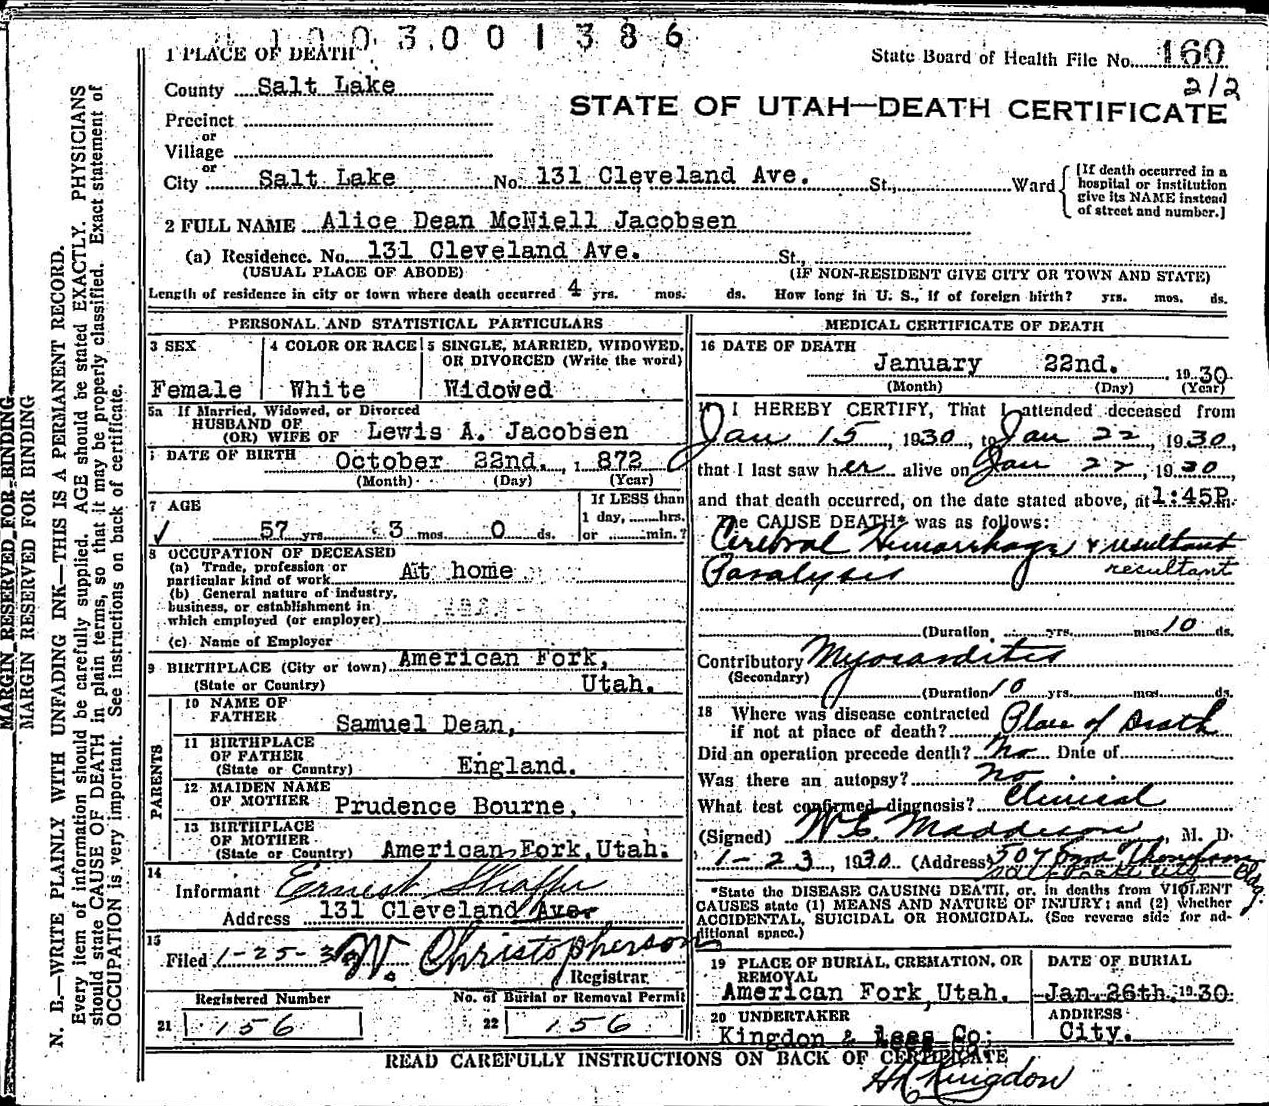 1003001386
State Board of Health File No. 160
212
1 PLACE OF DEATH
County Salt Lake
STATE OF UTAH—DEATH CERTIFICATE
Precinct
or
Village
or
City Salt Lake No. 131 Cleveland Ave. St., Ward
[If death occurred in a hospital or institution give its NAME instead of street and number.]
2 FULL NAME Alice Dean McNiell Jacobsen
(a) Residence. No. 131 Cleveland Ave. St.,
(USUAL PLACE OF ABODE) (IF NON-RESIDENT GIVE CITY OR TOWN AND STATE)
Length of residence in city or town where death occurred 4 yrs. mos. ds. How long in U. S., if of foreign birth? yrs. mos. ds.
PERSONAL AND STATISTICAL PARTICULARS
3 SEX
Female
4 COLOR OR RACE
White
5 SINGLE, MARRIED, WIDOWED, OR DIVORCED (Write the word)
Widowed
5a If Married, Widowed, or Divorced
HUSBAND OF
(OR) WIFE OF Lewis A. Jacobsen
DATE OF BIRTH October 22nd., 1872
(Month) (Day) (Year)
7 AGE
57 yrs. 3 mos. 0 ds.
If LESS than
1 day, hrs.
or min.?
8 OCCUPATION OF DECEASED
(a) Trade, profession or
particular kind of work At home
(b) General nature of industry,
business, or establishment in
which employed (or employer)
(c) Name of Employer
9 BIRTHPLACE (City or town) American Fork,
(State or Country) Utah.
PARENTS
10 NAME OF
FATHER Samuel Dean,
11 BIRTHPLACE
OF FATHER
(State or Country) England.
12 MAIDEN NAME
OF MOTHER Prudence Bourne,
13 BIRTHPLACE
OF MOTHER
(State or Country) American Fork, Utah.
14
Informant Ernest Shaffer
Address 131 Cleveland Ave.
15
Filed 1-25-30 W. Christopherson
Registrar.
Registered Number
21 156
No. of Burial or Removal Permit
22 156
MEDICAL CERTIFICATE OF DEATH
16 DATE OF DEATH
January 22nd. 1930
(Month) (Day) (Year)
17 I HEREBY CERTIFY, That I attended deceased from
Jan 15, 1930, to Jan 22, 1930,
that I last saw her alive on Jan 22, 1930
and that death occurred, on the date stated above, at 1:45P.m.
The CAUSE DEATH* was as follows:
Cerebral Hemorrhage & resultant
Paralysis resultant
(Duration yrs. mos. 10 ds.
Contributory Myocarditis
(Secondary)
(Duration 10 yrs. mos. ds.
18 Where was disease contracted
if not at place of death? Place of Death
Did an operation precede death? No Date of
Was there an autopsy? no
What test confirmed diagnosis? Clinical
(Signed) W E. Maddison, M. D.
1-23, 1930 (Address) 507 Ezra Thompson Bldg.
Salt Lake City
*State the DISEASE CAUSING DEATH, or, in deaths from VIOLENT
CAUSES state (1) MEANS AND NATURE OF INJURY; and (2) whether
ACCIDENTAL, SUICIDAL OR HOMICIDAL. (See reverse side for ad-
ditional space.)
19 PLACE OF BURIAL, CREMATION, OR
REMOVAL
American Fork, Utah.
DATE OF BURIAL
Jan. 26th, 1930.
20 UNDERTAKER
Kingdon & Lees Co;
ADDRESS
City.
READ CAREFULLY INSTRUCTIONS ON BACK OF CERTIFICATE
H C Kingdon
MARGIN RESERVED FOR BINDING
MARGIN RESERVED FOR BINDING
N. B.—WRITE PLAINLY WITH UNFADING INK—THIS IS A PERMANENT RECORD.
Every item of information should be carefully supplied. AGE should be stated EXACTLY. PHYSICIANS
should state CAUSE OF DEATH in plain terms, so that it may be properly classified. Exact statement of
OCCUPATION is very important. See instructions on back of certificate.